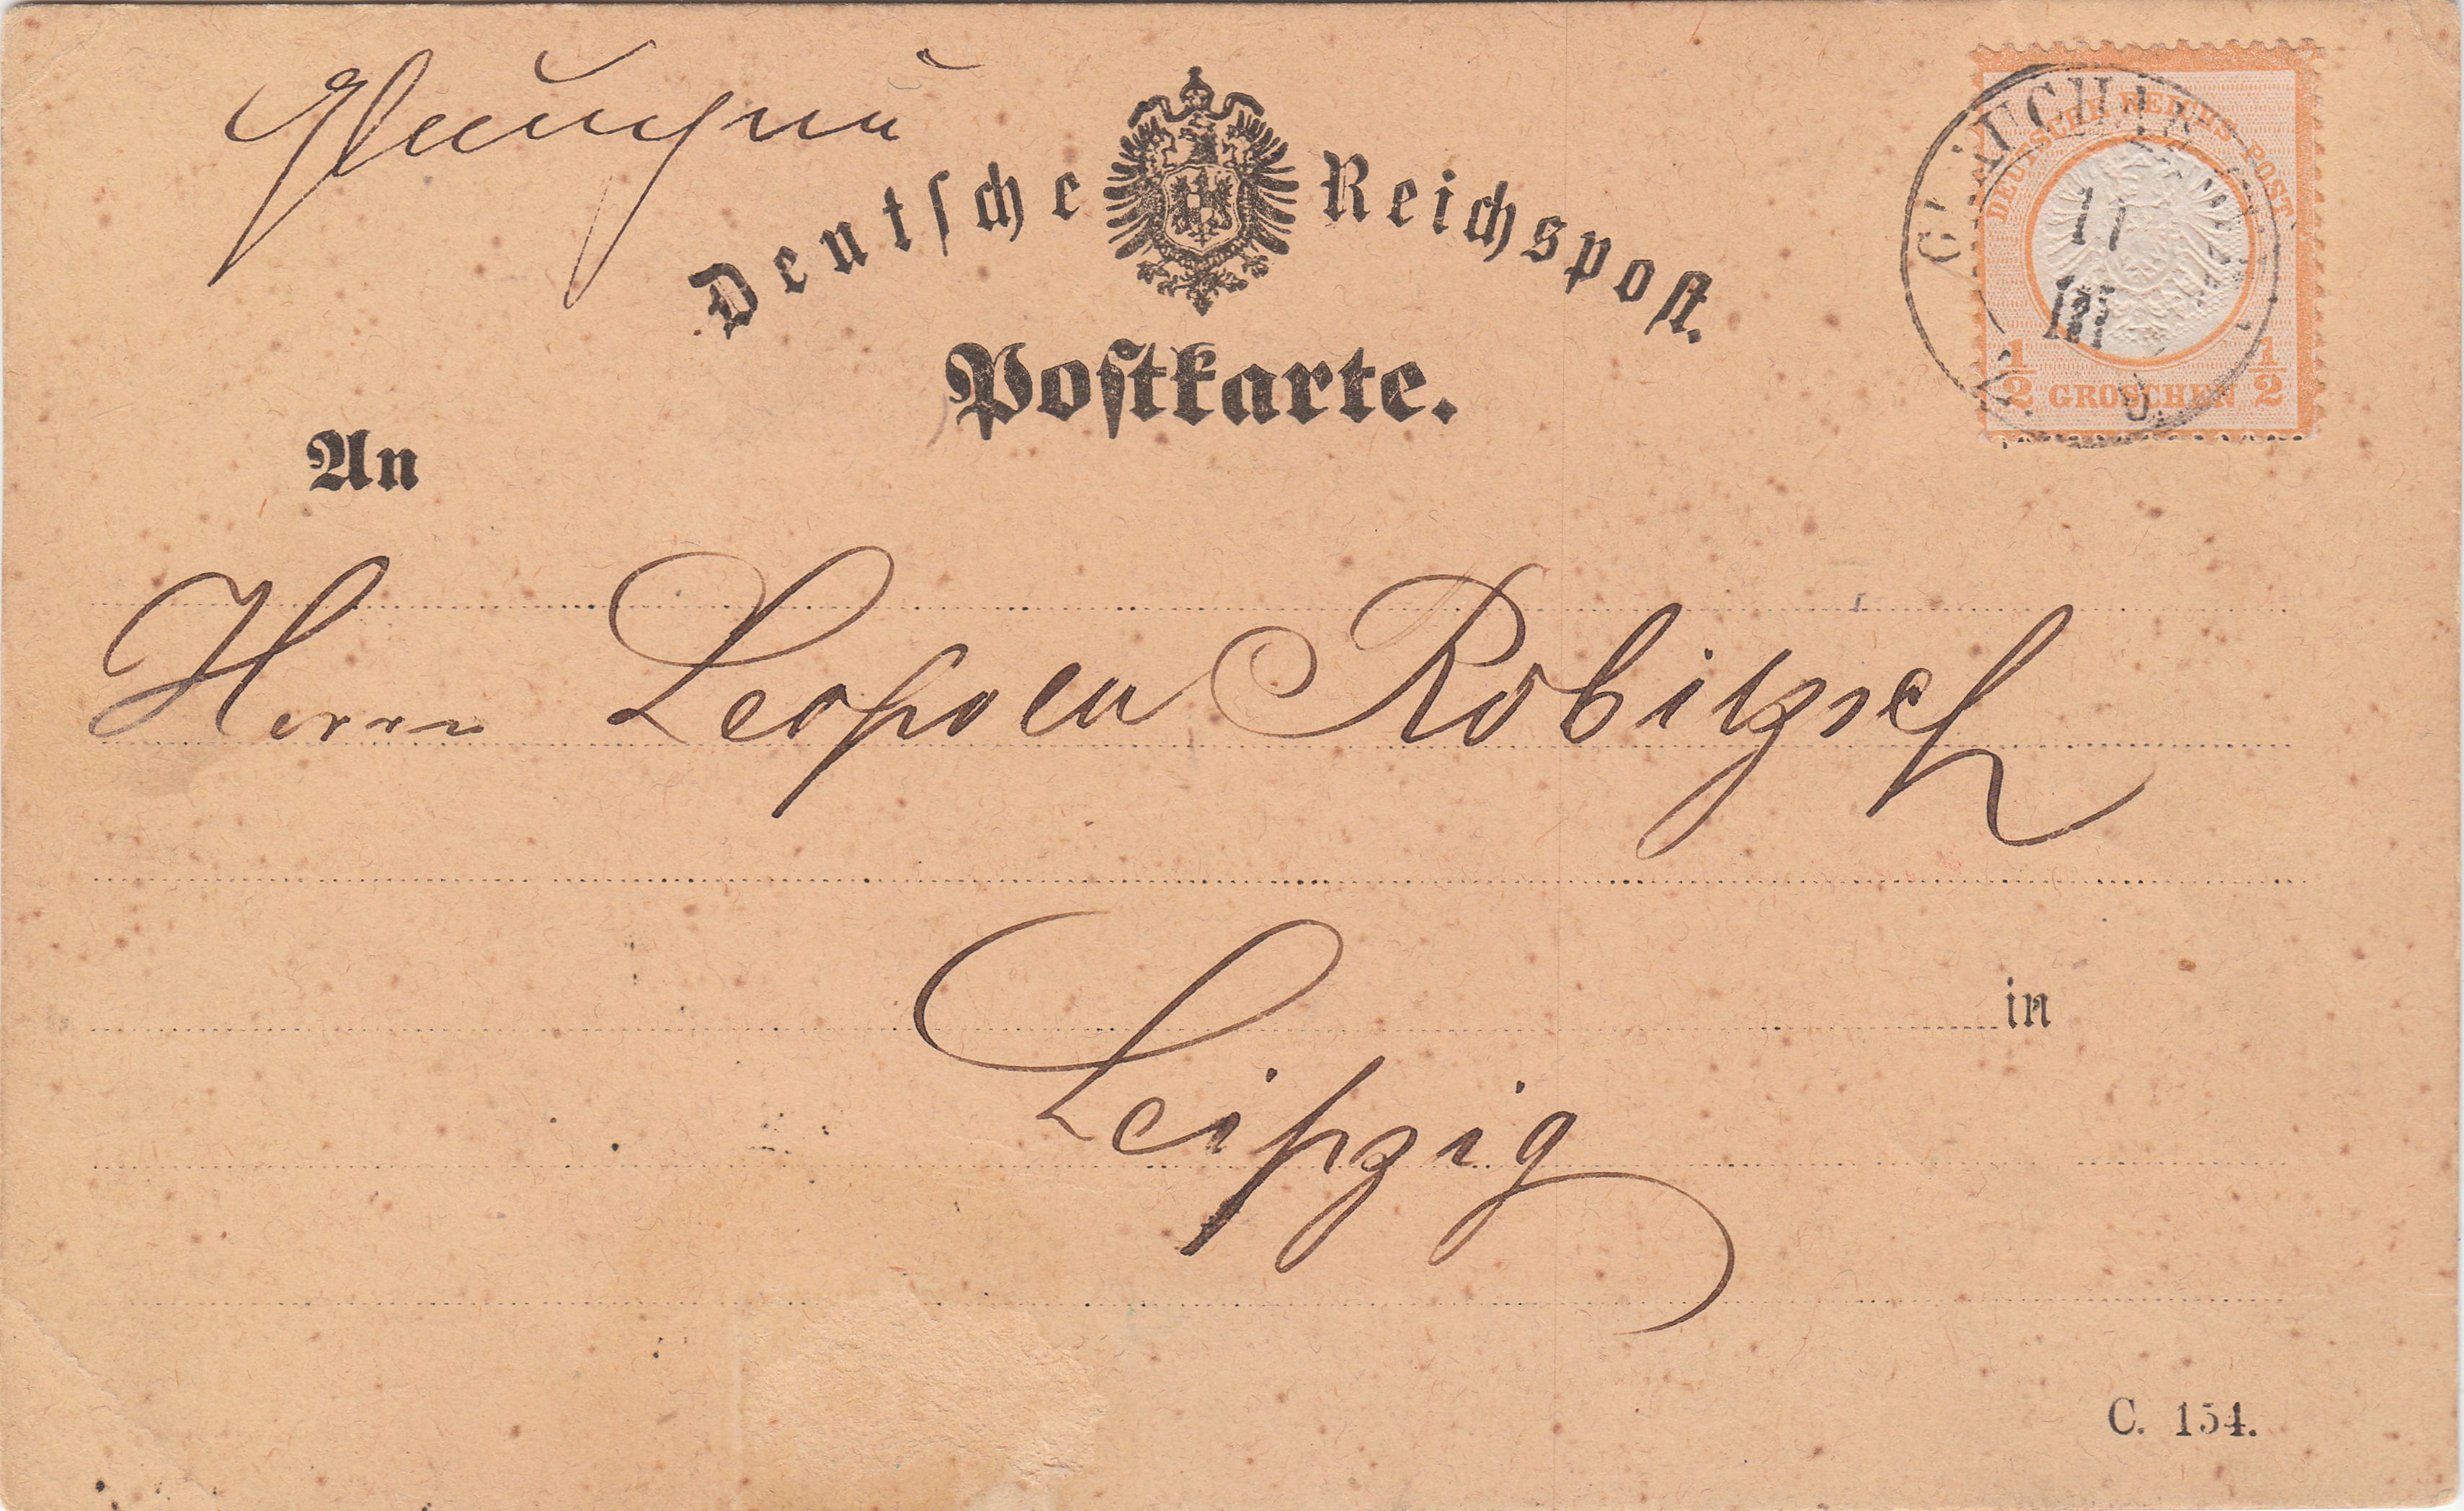 Glauchau
Deutsche Reichspost.
Postkarte.
DEUTSCHE REICHS-POST
1/2 GROSCHEN 1/2
GLAUCHAU
17
III
An
Herrn Leopold Robitzsch
in
Leipzig
C. 154.